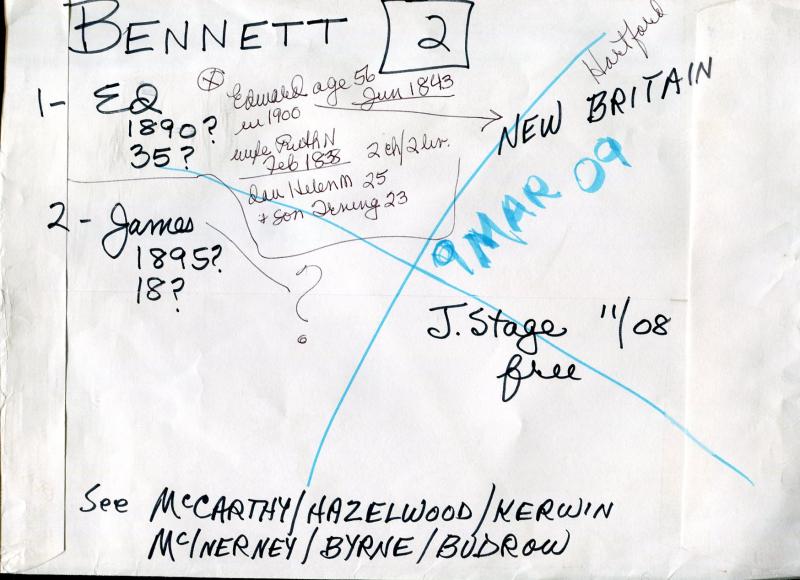 BENNETT 2
Hartford
1- ED
1890?
35?
Edward age 56
in 1900 Jun 1843
wife Ruth N
Feb 1838 2 ch/2 liv.
dau Helen M 25
+ son Irving 23
NEW BRITAIN
9 MAR 09
2- James
1895?
18?
?
J. Stage 11/08
free
See McCARTHY/HAZELWOOD/KERWIN
McINERNEY/BYRNE/BUDROW